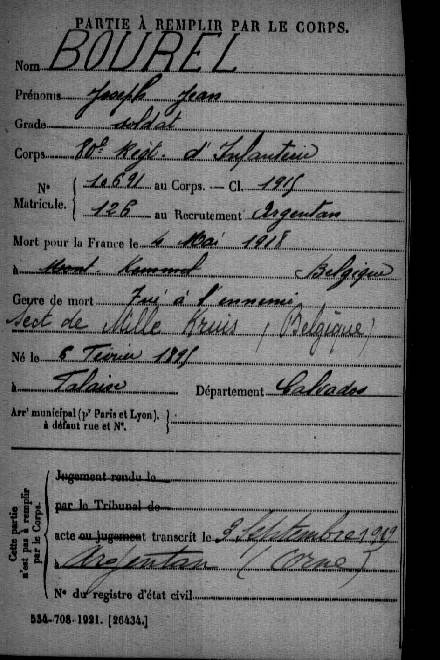 PARTIE À REMPLIR PAR LE CORPS.
Nom BOUREL
Prénoms Joseph Jean
Grade soldat
Corps 80e Régt. d'Infanterie
N° Matricule. 10691 au Corps. — Cl. 1915
126 au Recrutement Argentan
Mort pour la France le 4 Mai 1918
à Mont Kemmel Belgique
Genre de mort Tué à l'ennemi
Sect de Mille Kruis (Belgique)
Né le 6 Février 1895
à Falaise Département Calvados
Arrt municipal (pr Paris et Lyon), à défaut rue et N°.
Cette partie n'est pas à remplir par le Corps.
Jugement rendu le
par le Tribunal de
acte ou jugement transcrit le 3 Septembre 1919
Argentan (Orne)
N° du registre d'état civil
534-708-1921. [26434.]